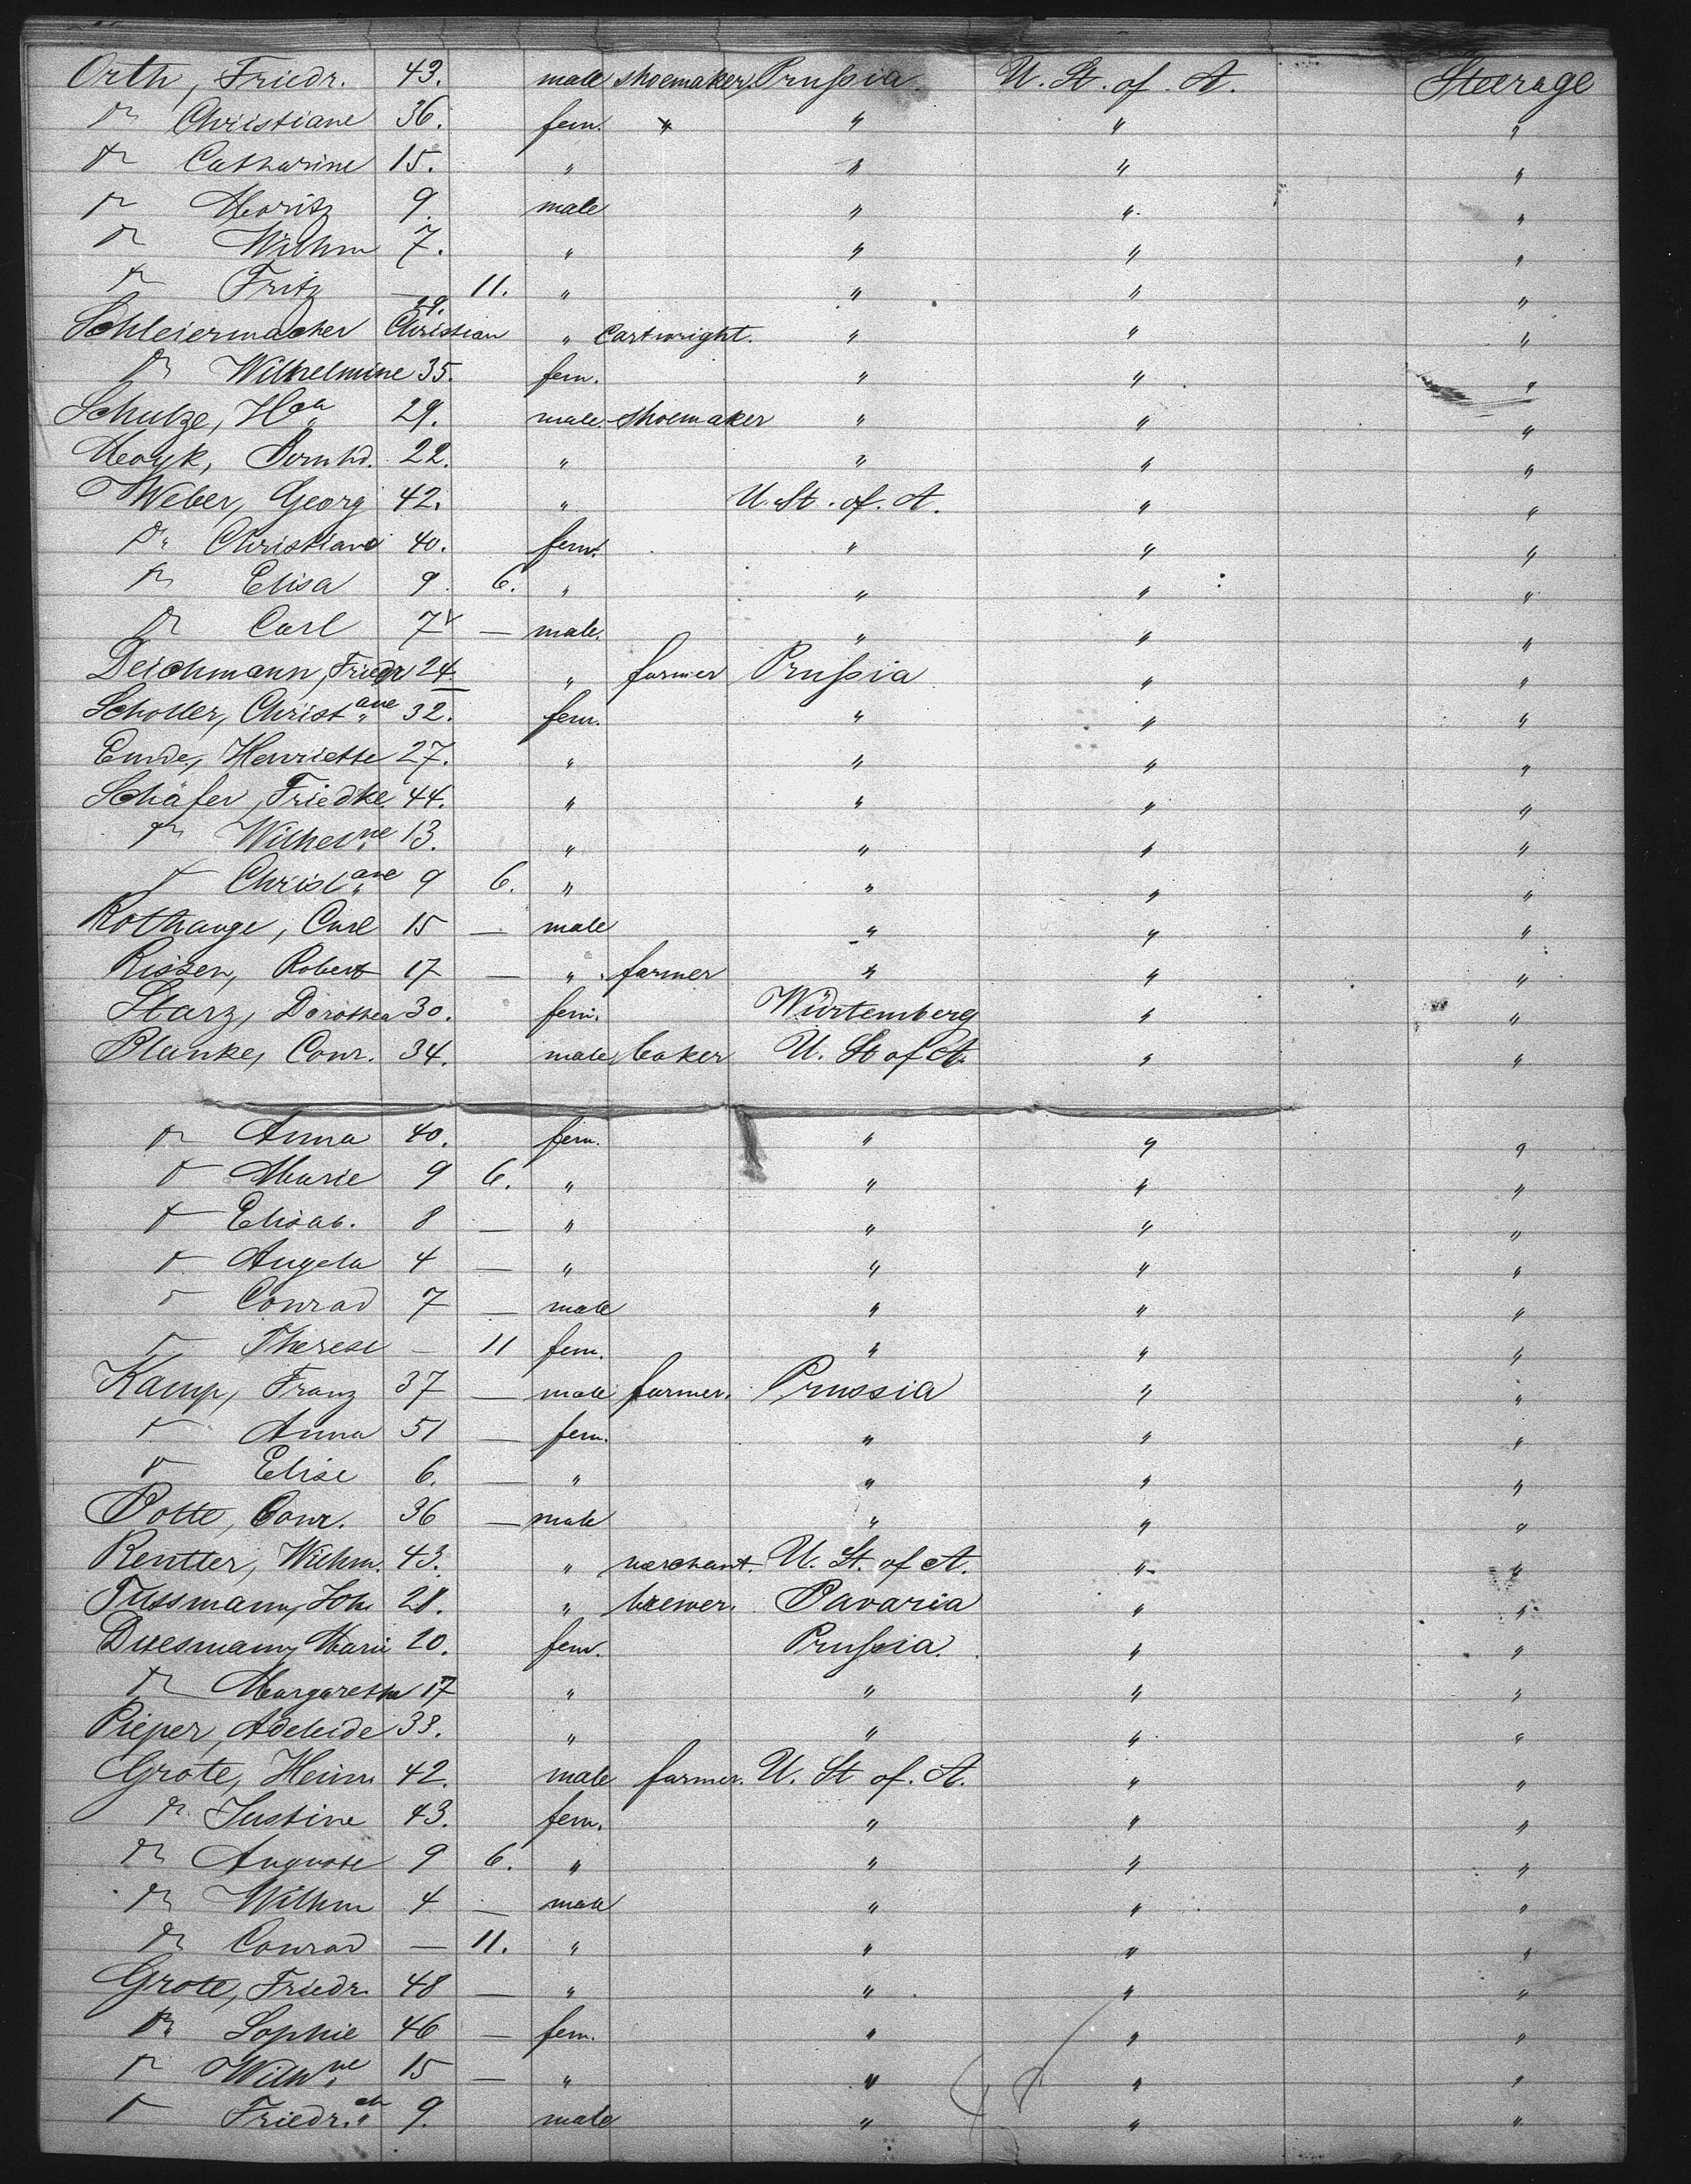 Orth, Friedr. 43. male shoemaker Prussia. U. St. of. A. Steerage
" Christiane 36. fem. " " " "
" Catharine 15. " " " "
" Moritz 9. male " " "
" Wilhm 7. " " " "
" Fritz — 11. " " " "
Schleiermacher Christian 29. " Cartwright. " " "
" Wilhelmine 35. fem. " " "
Schulze, Hch 29. male. shoemaker " " "
Bernhd. 22. " " " "
Weber, Georg 42. " U. St. of. A. " "
" Christiane 40. fem. " " "
" Elisa 9. 6. " " " "
" Carl 7 — male. " " "
Deichmann, Friedr 24. " farmer Prussia " "
Scholler, Christ.ane 32. fem. " " "
Emde, Henriette 27. " " " "
Schäfer, Friedke. 44. " " " "
" Wilhelne 13. " " " "
" Christ.ane 9 6. " " " "
Rothauge, Carl 15 — male " " "
Rissen, Robert 17 — " farmer " " "
Starz, Dorothea 30. fem. Würtemberg " "
Planke, Conr. 34. male baker U. St of A. " "
" Anna 40. fem. " " "
" Marie 9 6. " " " "
" Elisab. 8 — " " " "
" Angela 4 — " " " "
" Conrad 7 — male " " "
" Therese — 11 fem. " " "
Kamp, Franz 37 — male farmer. Prussia " "
" Anna 51 — fem. " " "
" Elise 6. — " " " "
Potte, Conr. 36 — male " " "
Rentter, Wilhm. 43. " merchant. U. St. of A. " "
Tussmann, Joh. 28. " brewer. Bavaria " "
Duesmann, Marie 20. fem. Prussia. " "
" Margaretha 17 " " " "
Pieper, Adeleide 33. " " " "
Grote, Heinr. 42. male farmer. U. St of. A. " "
" Justine 43. fem. " " "
" Auguste 9 6. " " " "
" Wilhm 4 — male " " "
" Conrad — 11. " " " "
Grote, Friedr. 48 — " " " "
" Sophie 46 — fem. " " "
" Wilhne 15 — " " " "
" Friedr.ch 9. male " " "